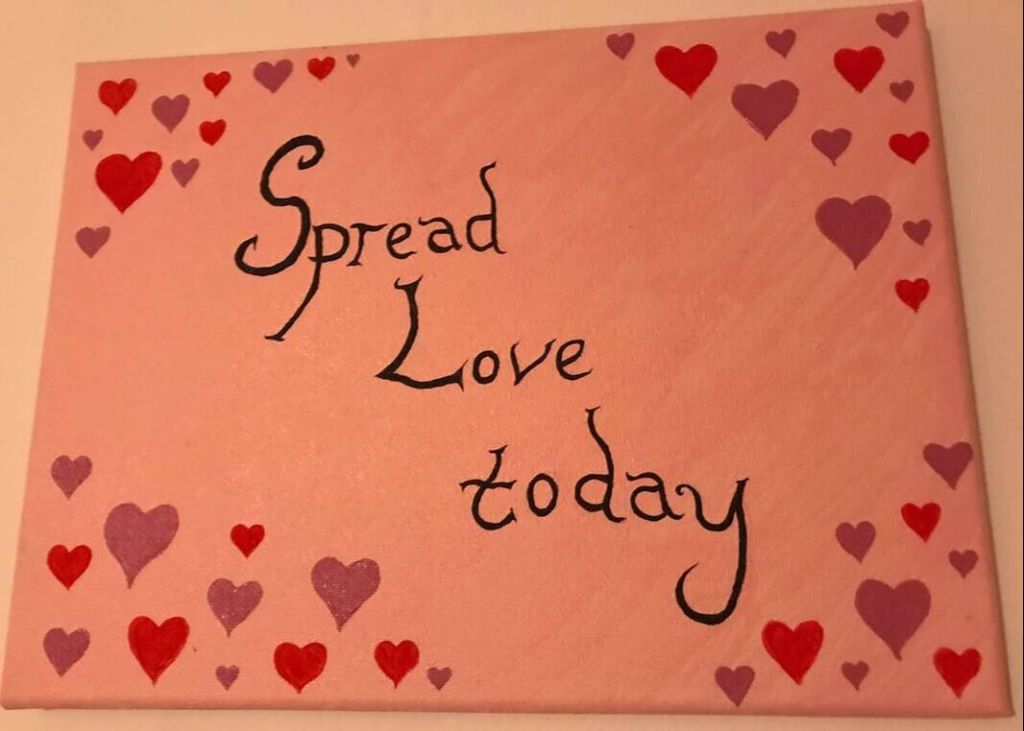 Spread
Love
today